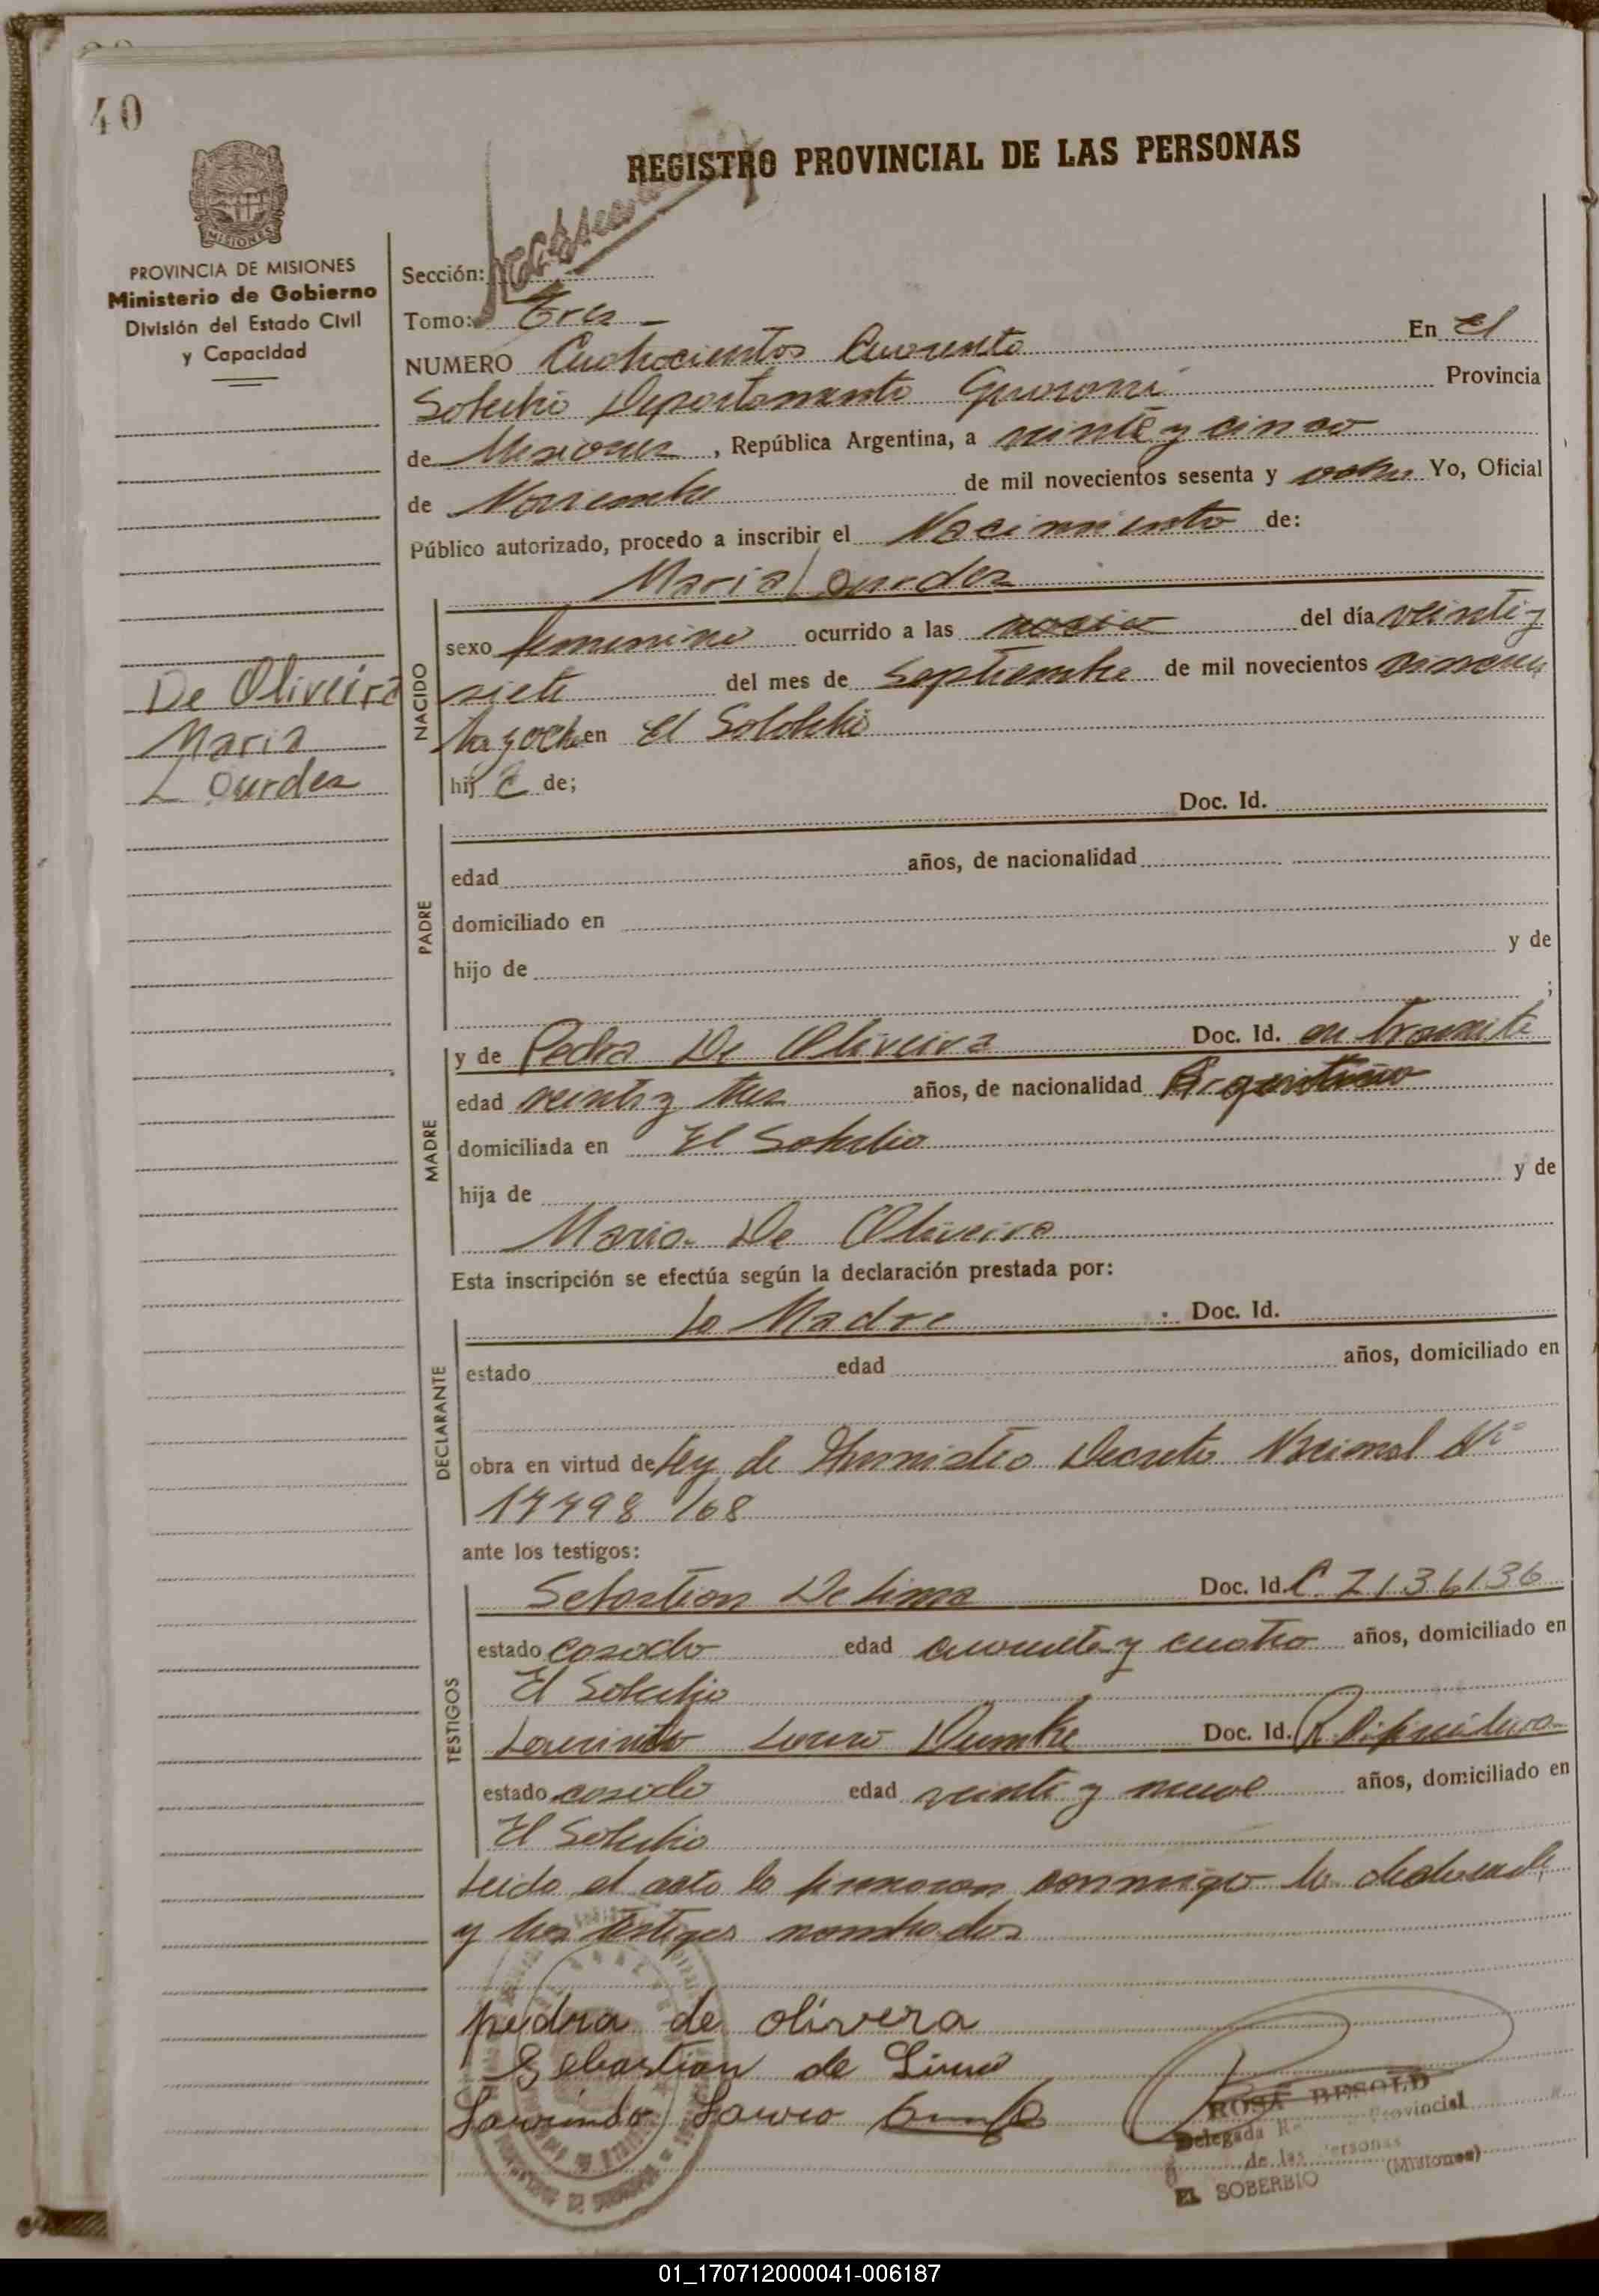 40
REGISTRO PROVINCIAL DE LAS PERSONAS
MISIONES
PROVINCIA DE MISIONES
Ministerio de Gobierno
División del Estado Civil
y Capacidad
Sección:
Tomo: Tres
NUMERO Cuatrocientos Cuarenta En El
Soberbio Departamento Guarani Provincia
de Misiones, República Argentina, a veinte y cinco
de Noviembre de mil novecientos sesenta y ocho Yo, Oficial
Público autorizado, procedo a inscribir el Nacimiento de:
Maria Lourdes
NACIDO
sexo femenino ocurrido a las del día veinti y
siete del mes de Septiembre de mil novecientos cincuen
ta y ocho en El Soberbio
hij a de;
De Oliveira
Maria
Lourdes
PADRE
Doc. Id.
edad años, de nacionalidad
domiciliado en
hijo de y de
;
MADRE
y de Pedra De Oliveira Doc. Id. en tramite
edad veinte y tres años, de nacionalidad Argentina
domiciliada en El Soberbio
hija de y de
Maria De Oliveira
Esta inscripción se efectúa según la declaración prestada por:
DECLARANTE
la Madre Doc. Id.
estado edad años, domiciliado en
obra en virtud de Ley de Amnistia Decreto Nacional Nº
17798/68
ante los testigos:
TESTIGOS
Sebastian De Lima Doc. Id. C. 2136136
estado casado edad cuarenta y cuatro años, domiciliado en
El Soberbio
Laurindo Lauro Doc. Id.
estado casado edad veinte y nueve años, domiciliado en
El Soberbio
Leido el acta la firmaron conmigo la declarante
y los testigos nombrados
pedra de olivera
Sebastian de Lima
Laurindo Lauro
ROSA BESOLD
Delegada Provincial
de las Personas
EL SOBERBIO (Misiones)
01_170712000041-006187